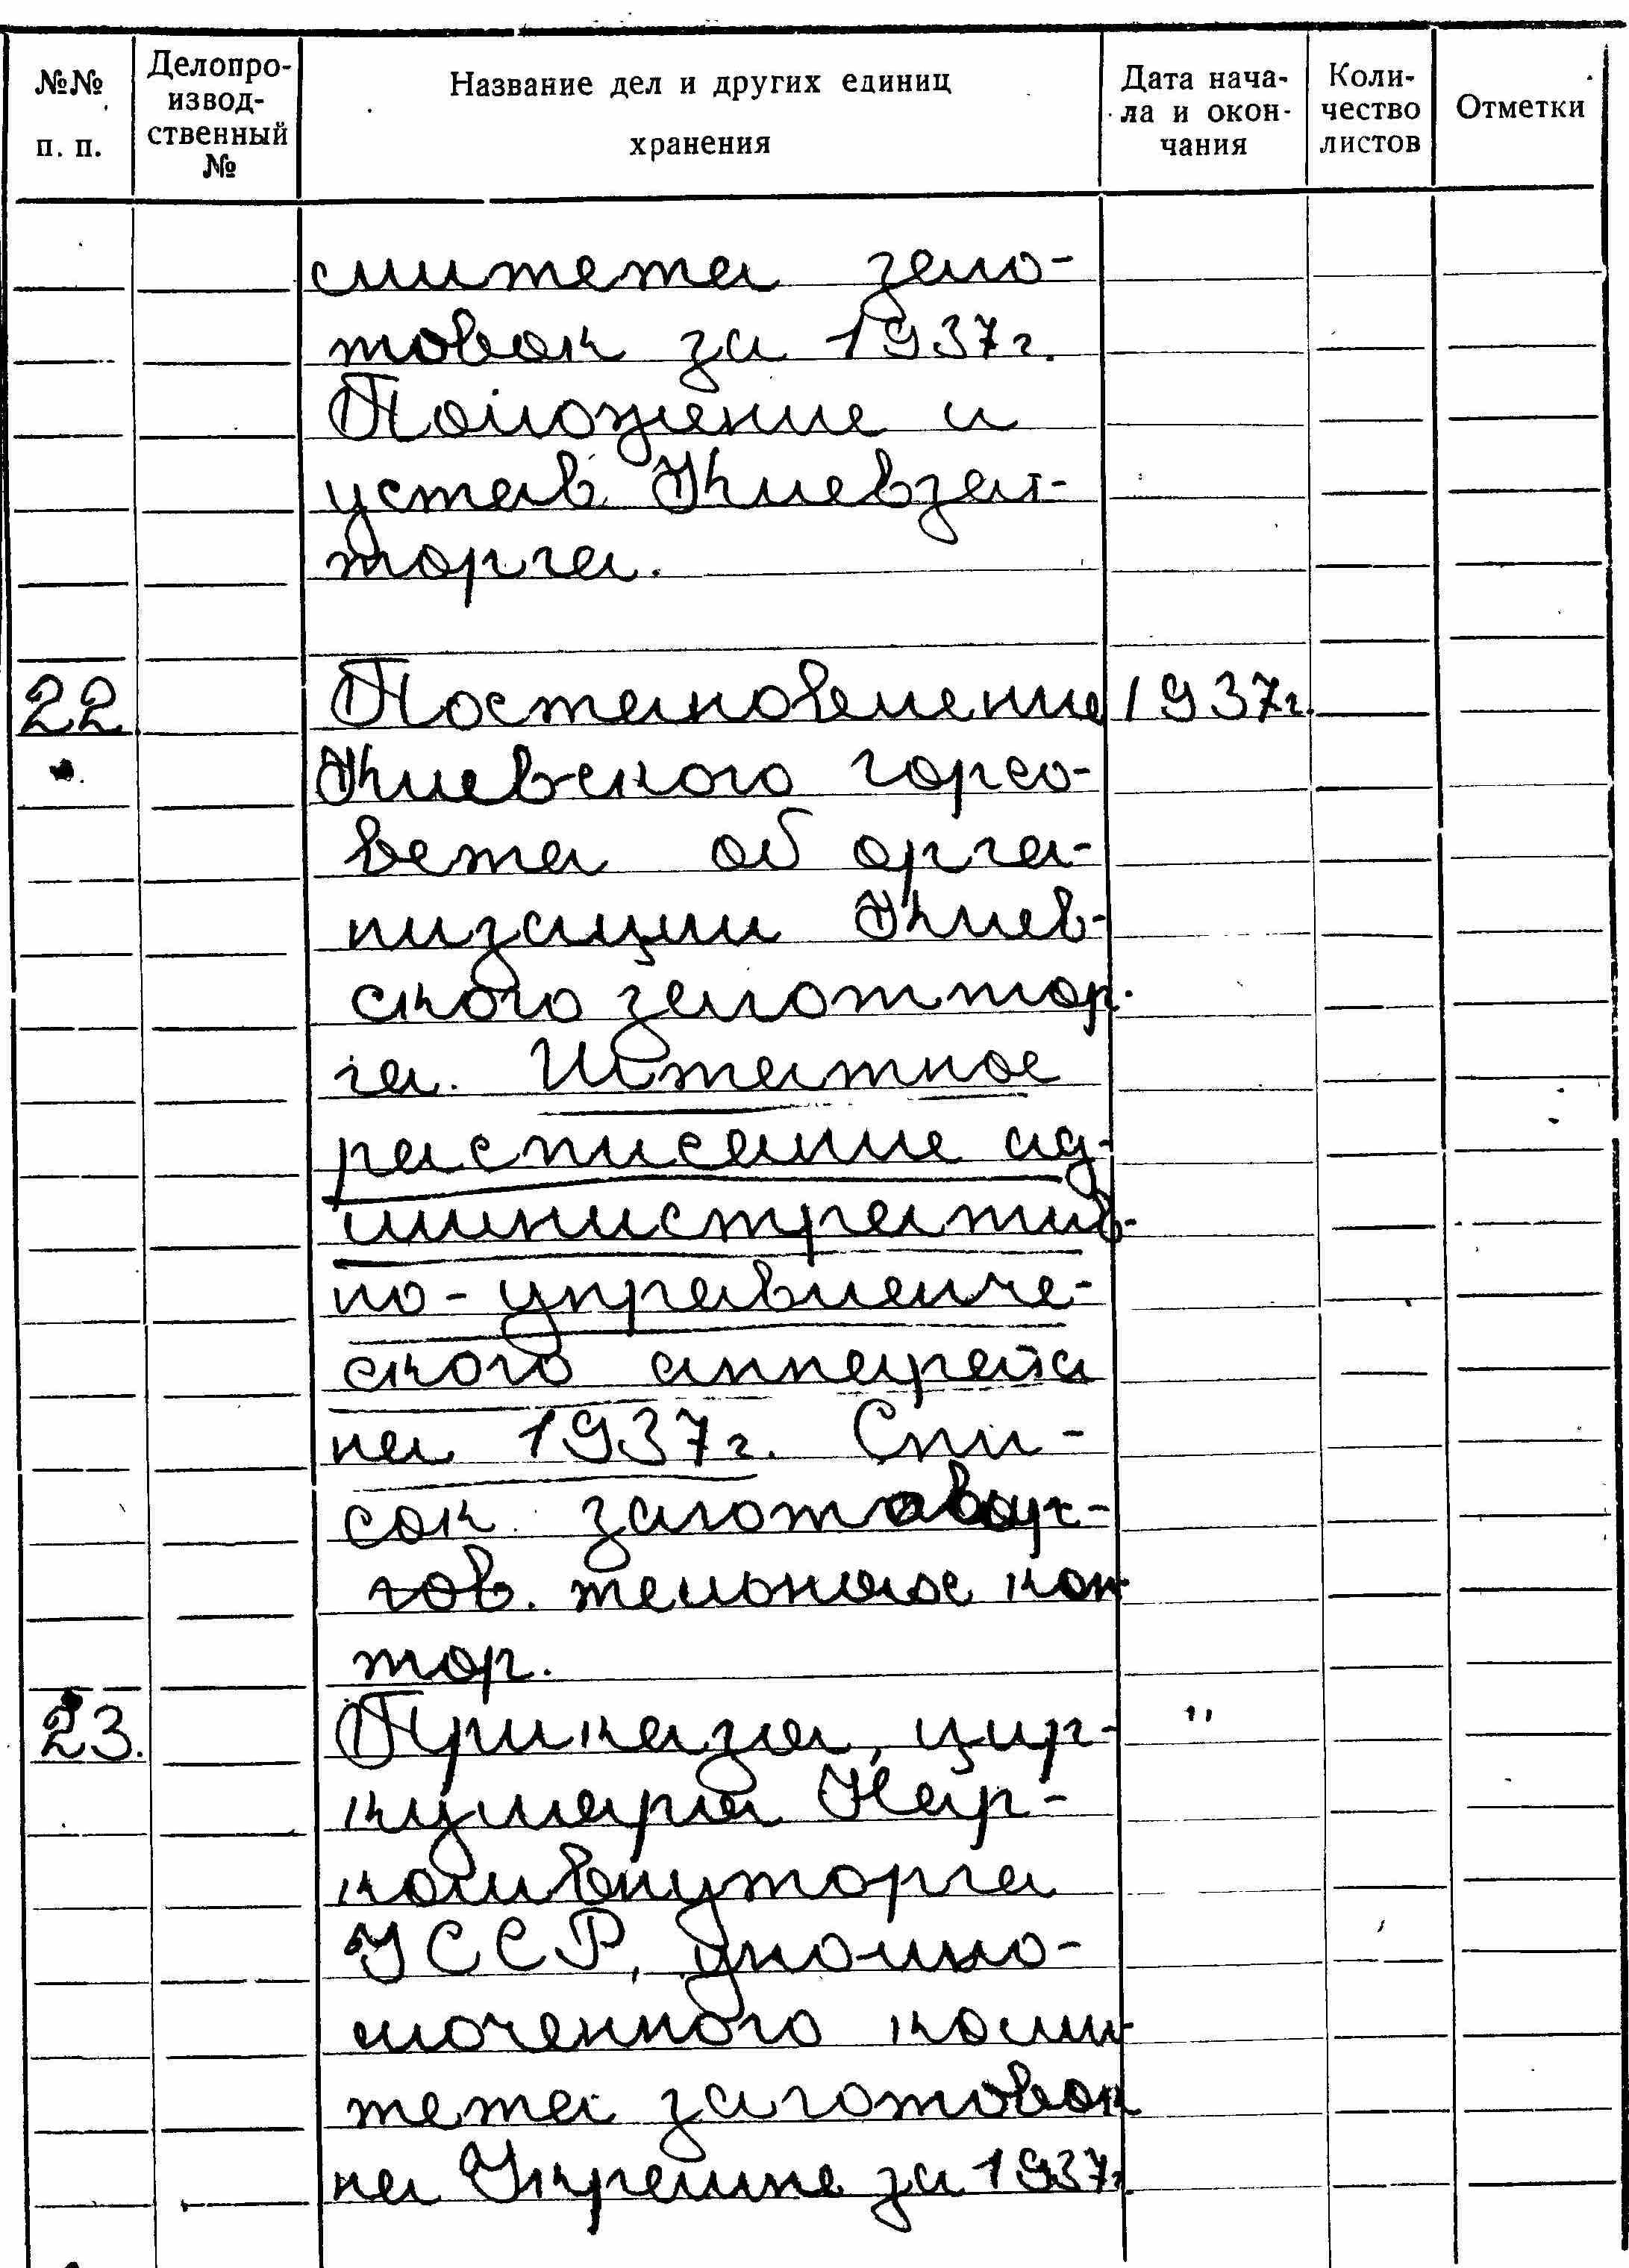 №№ п. п.
Делопро-
извод-
ственный
№
Название дел и других единиц
хранения
Дата нача-
ла и окон-
чания
Коли-
чество
листов
Отметки
митета заго-
товок за 1937г.
Положение и
устав Киевзаг-
торга.
22 Постановление 1937г.
Киевского горсо-
вета об орга-
низации Киев-
ского заготтор-
га. Штатное
расписание ад-
министратив-
но-управленче-
ского аппарата
на 1937г. Спи-
сок заготови-
тельных кон-
тор.
23. Приказы, цир- "
куляры Нар-
комвнуторга
УССР, уполно-
моченного коми-
тета заготовок
на Украине за 1937г.